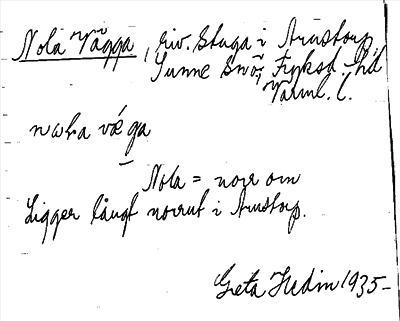 Nola Vägga, riv. Stuga i Arnstorp,
Sunne snö, Fryksd. hd
Värml. l.
nωla vǽga
Nola = norr om
Ligger långt norrut i Arnstorp.
Greta Hedin 1935-